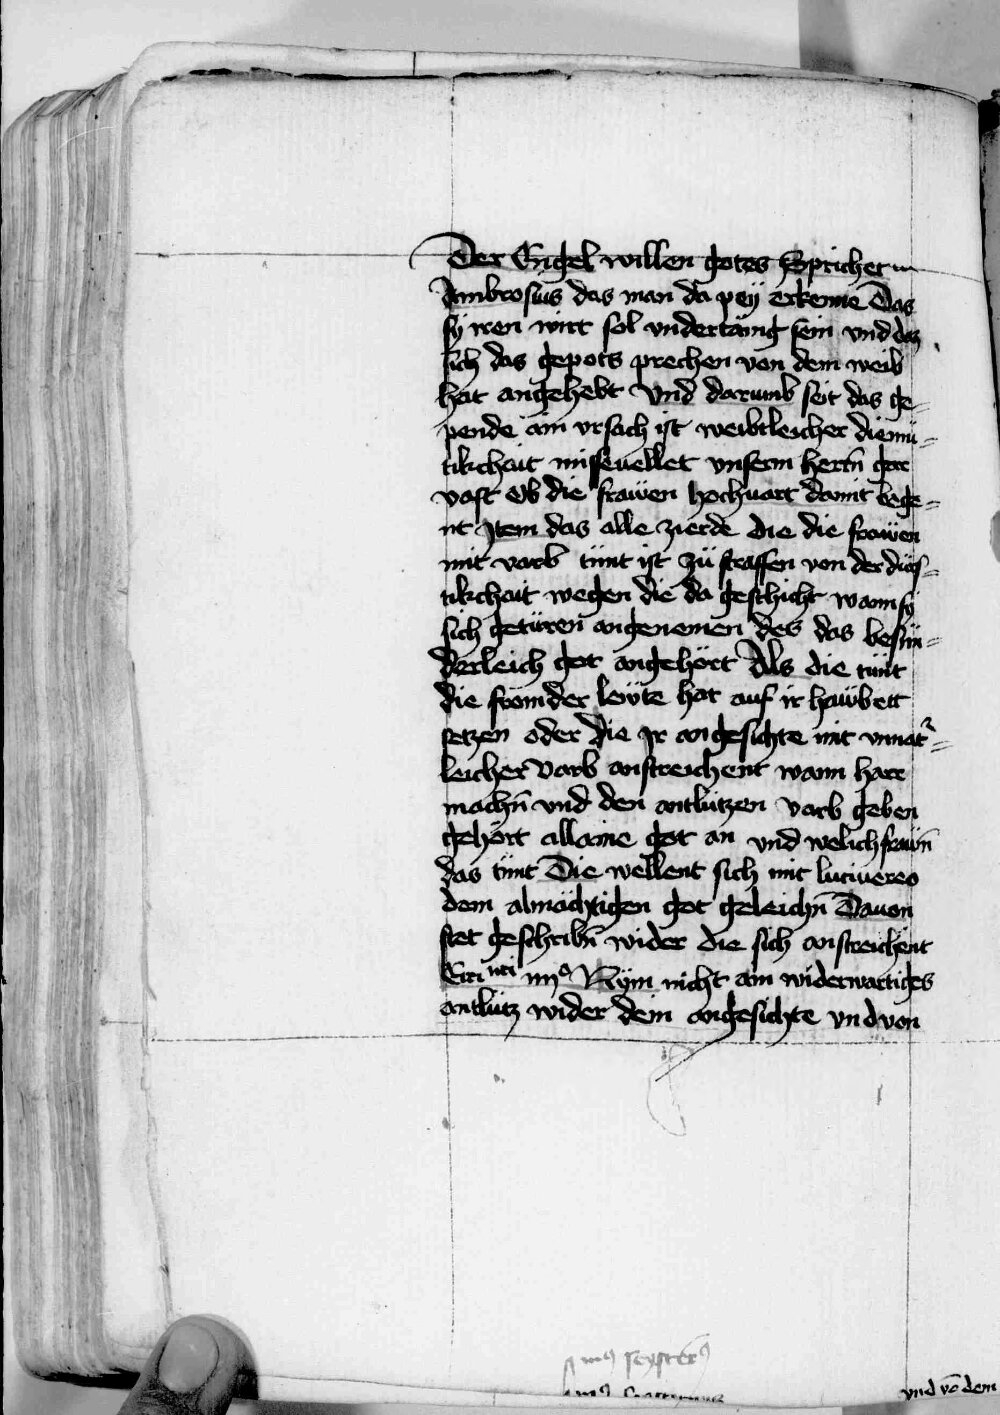 Der Engel willen gotes Spricht
Ambrosius das man da pey erkenne Das
sy iren wirt sol undertänig sein und daz
sich das gepots prechen von dem weib
hat angehebt Und darumb seit das ge-
pende ain ursach ist weibtleicher diemü-
tikchait missevellet unserm herrn gar
vast Ob die frawen hochvart damit bege-
nt Item das alle zierde die die frawen
mit varb tünt ist zü straffen von der
tikchait wegen die da geschicht wann sy
sich getüren angenemen des das besün-
derleich got angehört Als die tünt
die frömder lewte har auf ir hawbett
setzen oder die Ir angesichte mit unnatr-
leicher Varb anstreichent wann harr
machn und den antlützen varb geben
gehört allaine got an und welich frawn
das tünt Die wellent sich mit lucivereo
dem almächtigen got geleichn Davon
stet geschribn wider die sich anstreichent
Nym nicht ain widerwartiges
antlütz wider dein angesichte und von
und vo dem